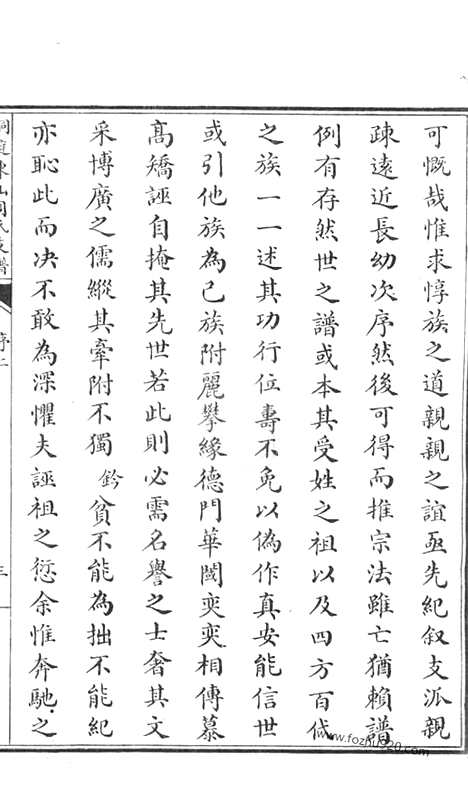 可慨哉惟求惇族之道親親之誼亟先紀叙支派親
疎遠近長幼次序然後可得而推宗法雖亡猶賴譜
例有存然世之譜或本其受姓之祖以及四方百代
之族一一述其功行位壽不免以偽作真安能信世
或引他族為己族附麗攀緣德門華閥奕奕相傳慕
高矯誣自掩其先世若此則必需名譽之士奢其文
采博廣之儒縱其牽附不獨鈐貧不能為拙不能紀
亦恥此而决不敢為深懼夫誣祖之愆余惟奔馳之
洞庭東山周氏支譜
序二
三
www.fozhu920.com